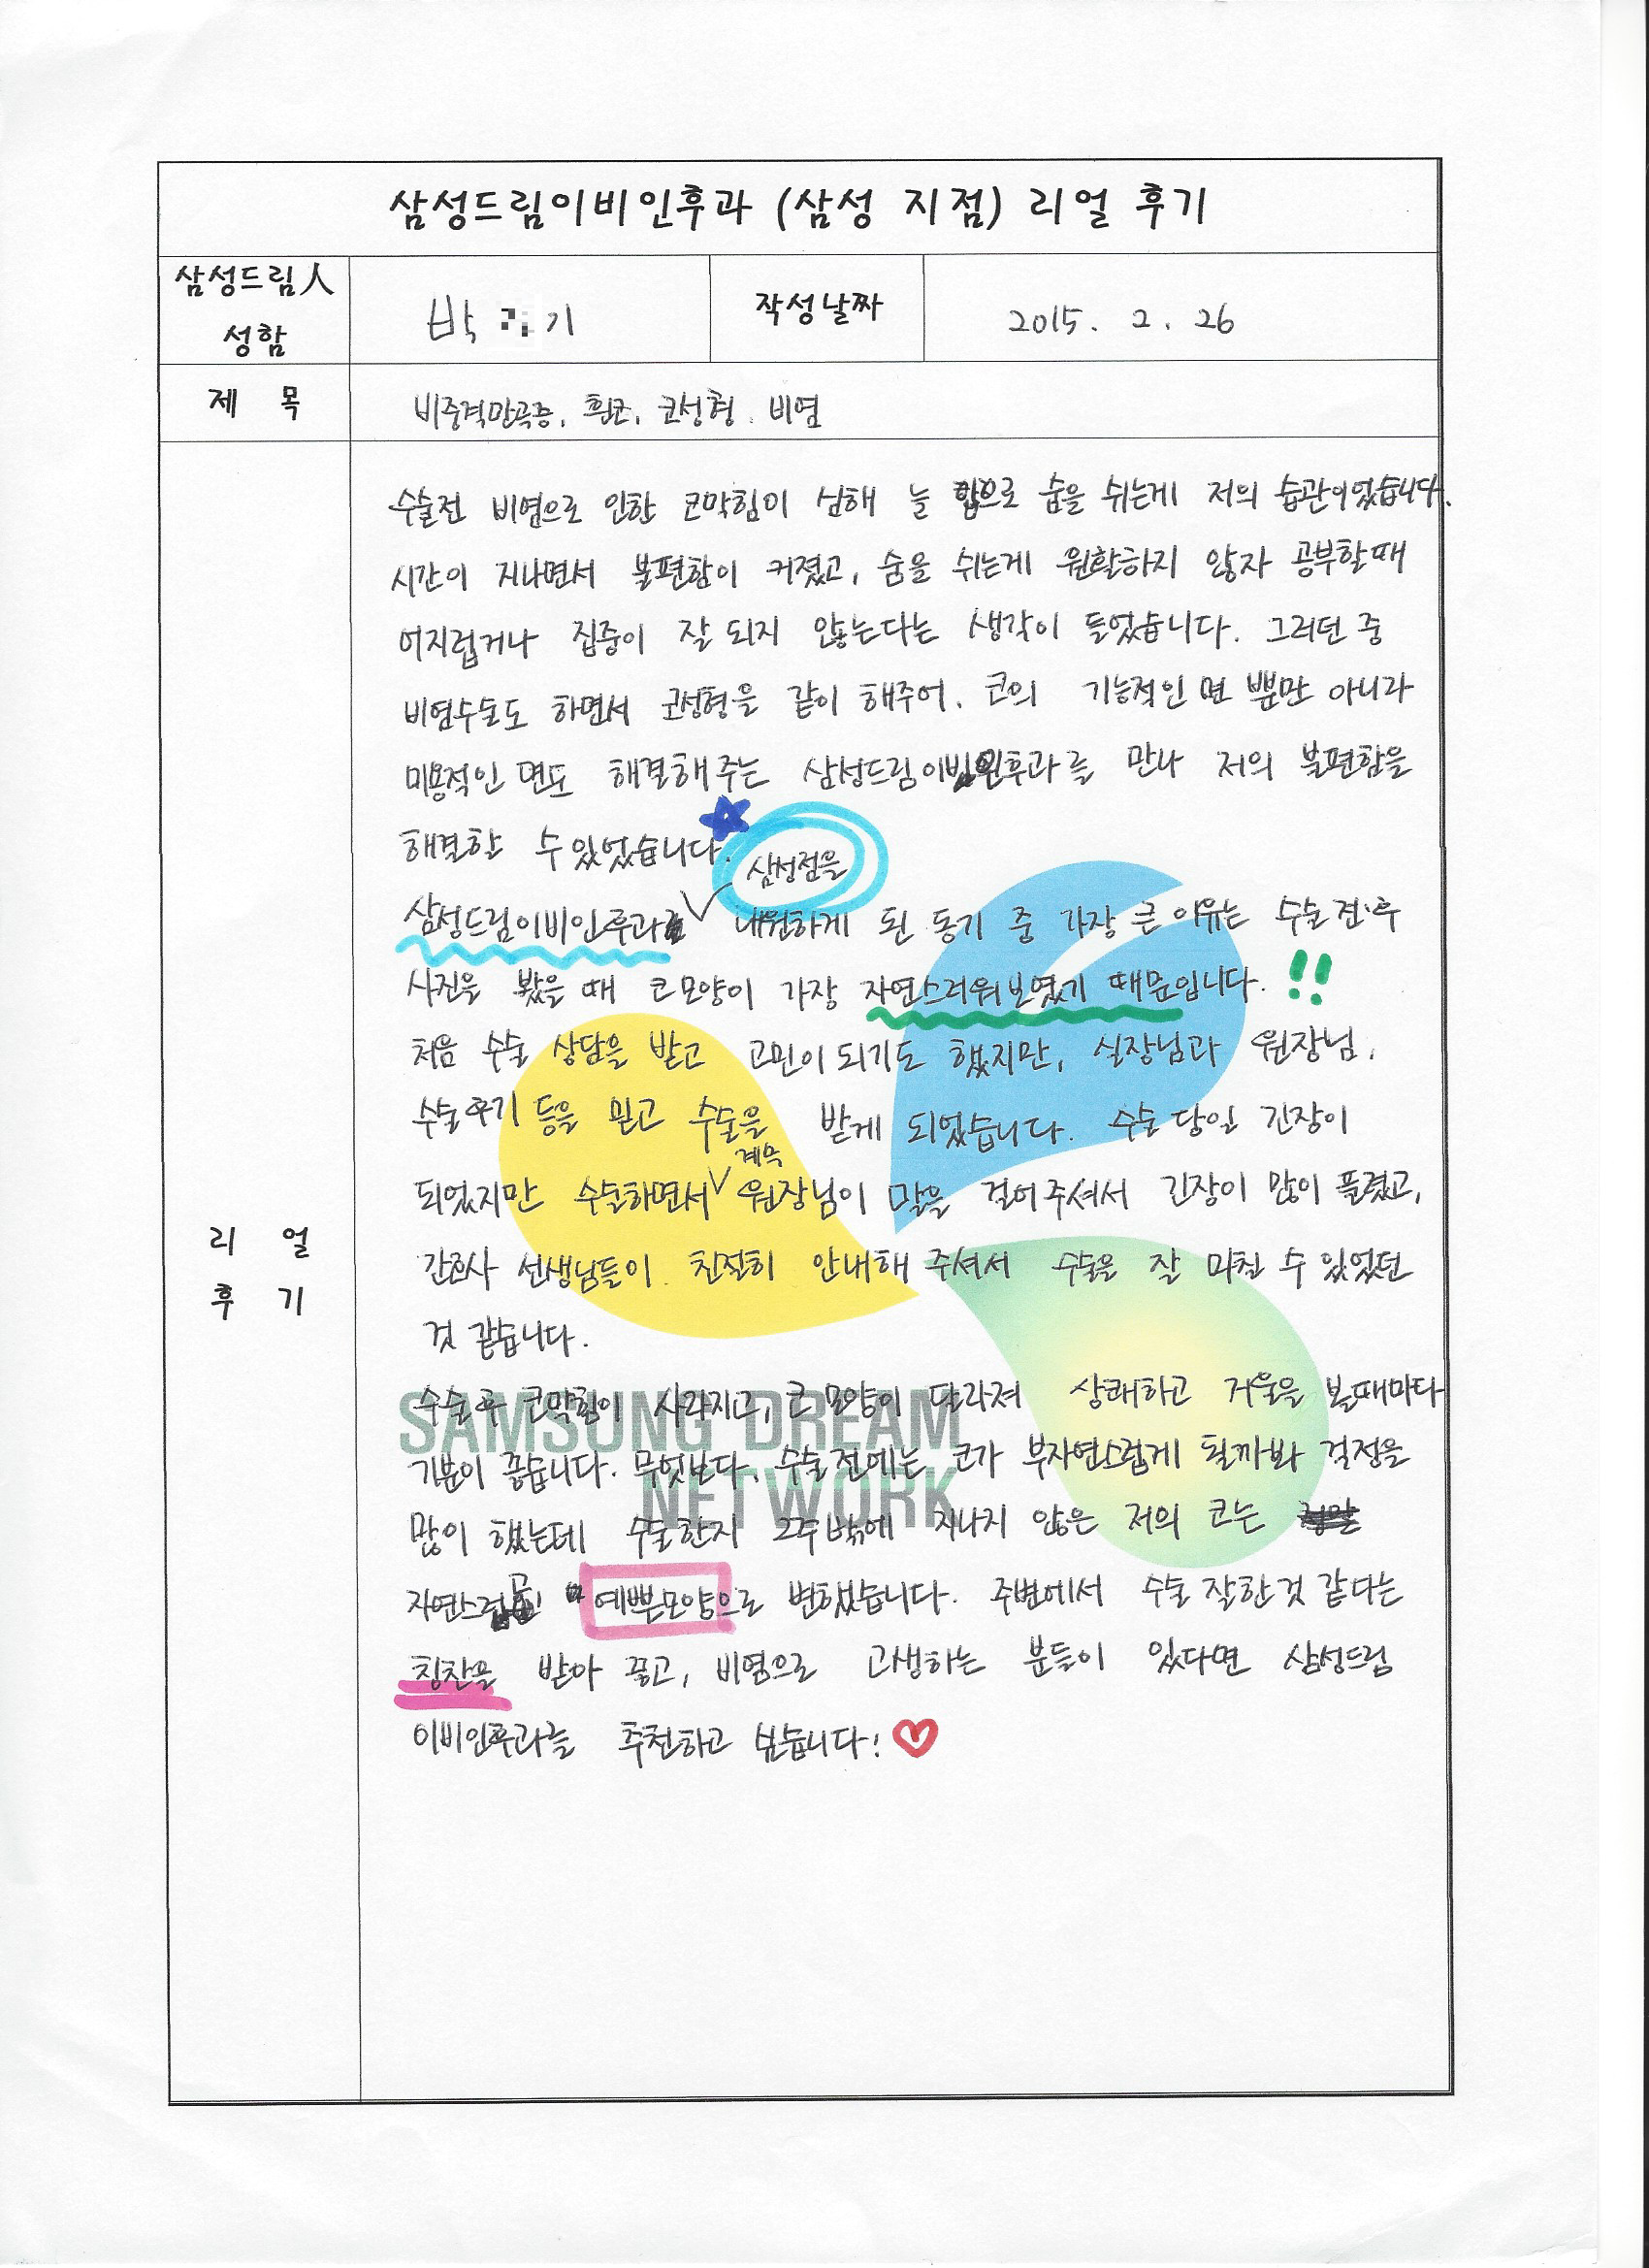 삼성드림이비인후과 (삼성 지점) 리얼 후기
삼성드림人
성함
박 기
작성날짜
2015. 2. 26
제 목
비중격만곡증, 휜코, 코성형. 비염
수술전 비염으로 인한 코막힘이 심해 늘 입으로 숨을 쉬는게 저의 습관이었습니다.
시간이 지나면서 불편함이 커졌고, 숨을 쉬는게 원활하지 않자 공부할때
어지럽거나 집중이 잘 되지 않는다는 생각이 들었습니다. 그러던 중
비염수술도 하면서 코성형을 같이 해주어, 코의 기능적인 면 뿐만 아니라
미용적인 면도 해결해 주는 삼성드림이비인후과를 만나 저의 불편함을
해결할 수 있었습니다.
삼성점을
삼성드림이비인후과 내원하게 된 동기 중 가장 큰 이유는 수술 전·후
사진을 봤을 때 코모양이 가장 자연스러워보였기 때문입니다. !!
처음 수술 상담을 받고 고민이 되기도 했지만, 실장님과 원장님,
수술후기 등을 믿고 수술을 받게 되었습니다. 수술 당일 긴장이
계속
되었지만 수술하면서 원장님이 말을 걸어주셔서 긴장이 많이 풀렸고,
간호사 선생님들이 친절히 안내해 주셔서 수술을 잘 마칠 수 있었던
것 같습니다.
수술 후 코막힘이 사라지고, 코 모양이 달라져 상쾌하고 거울을 볼때마다
기분이 좋습니다. 무엇보다, 수술전에는 코가 부자연스럽게 될까봐 걱정을
많이 했는데 수술한지 2주밖에 지나지 않은 저의 코는
자연스럽고 예쁜모양으로 변했습니다. 주변에서 수술 잘한것 같다는
칭찬을 받아 좋고, 비염으로 고생하는 분들이 있다면 삼성드림
이비인후과를 추천하고 싶습니다!
리 얼
후 기
SAMSUNG DREAM
NETWORK